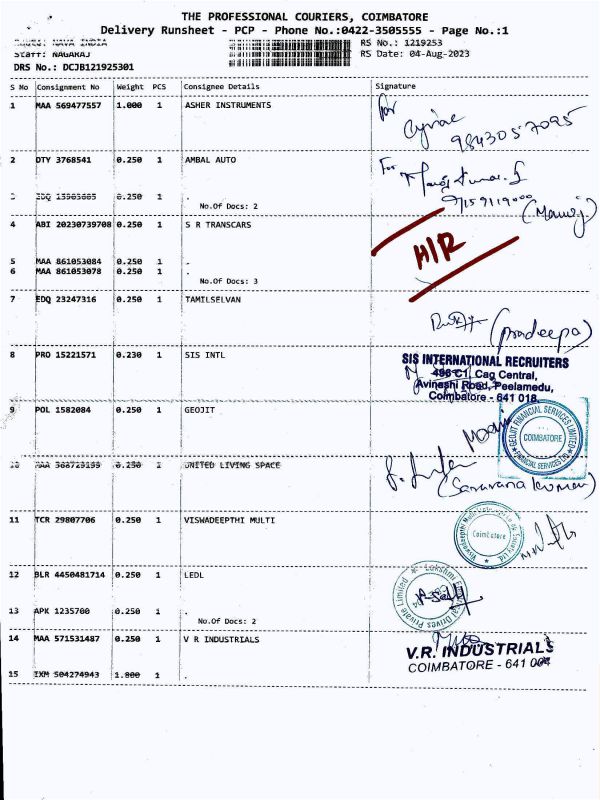 THE PROFESSIONAL COURIERS, COIMBATORE
Delivery Runsheet - PCP - Phone No.:0422-3505555 - Page No.:1
NAVA INDIA RS No.: 1219253
Staff: NAGARAJ RS Date: 04-Aug-2023
DRS No.: DCJB121925301
S No Consignment No Weight PCS Consignee Details Signature
1 MAA 569477557 1.000 1 ASHER INSTRUMENTS
for
9843057095
2 DTY 3768541 0.250 1 AMBAL AUTO
For
3 EDQ 0.250 1 .
No.Of Docs: 2
9159119000
(Manoj)
4 ABI 20230739708 0.250 1 S R TRANSCARS
H/R
5 MAA 861053084 0.250 1 .
6 MAA 861053078 0.250 1 .
No.Of Docs: 3
7 EDQ 23247316 0.250 1 TAMILSELVAN
(pradeepa)
8 PRO 15221571 0.230 1 SIS INTL
SIS INTERNATIONAL RECRUITERS
496 C1, Cag Central,
Avinashi Road, Peelamedu,
Coimbatore - 641 018.
9 POL 1582084 0.250 1 GEOJIT
GEOJIT FINANCIAL SERVICES LIMITED
COIMBATORE
10 MAA 0.250 1 UNITED LIVING SPACE
(Saravana kumar)
11 TCR 29807706 0.250 1 VISWADEEPTHI MULTI
Coimbatore
12 BLR 4450481714 0.250 1 LEDL
13 APK 1235700 0.250 1 .
No.Of Docs: 2
14 MAA 571531487 0.250 1 V R INDUSTRIALS
V.R. INDUSTRIALS
COIMBATORE - 641 004
15 IXM 504274943 1.800 1 .